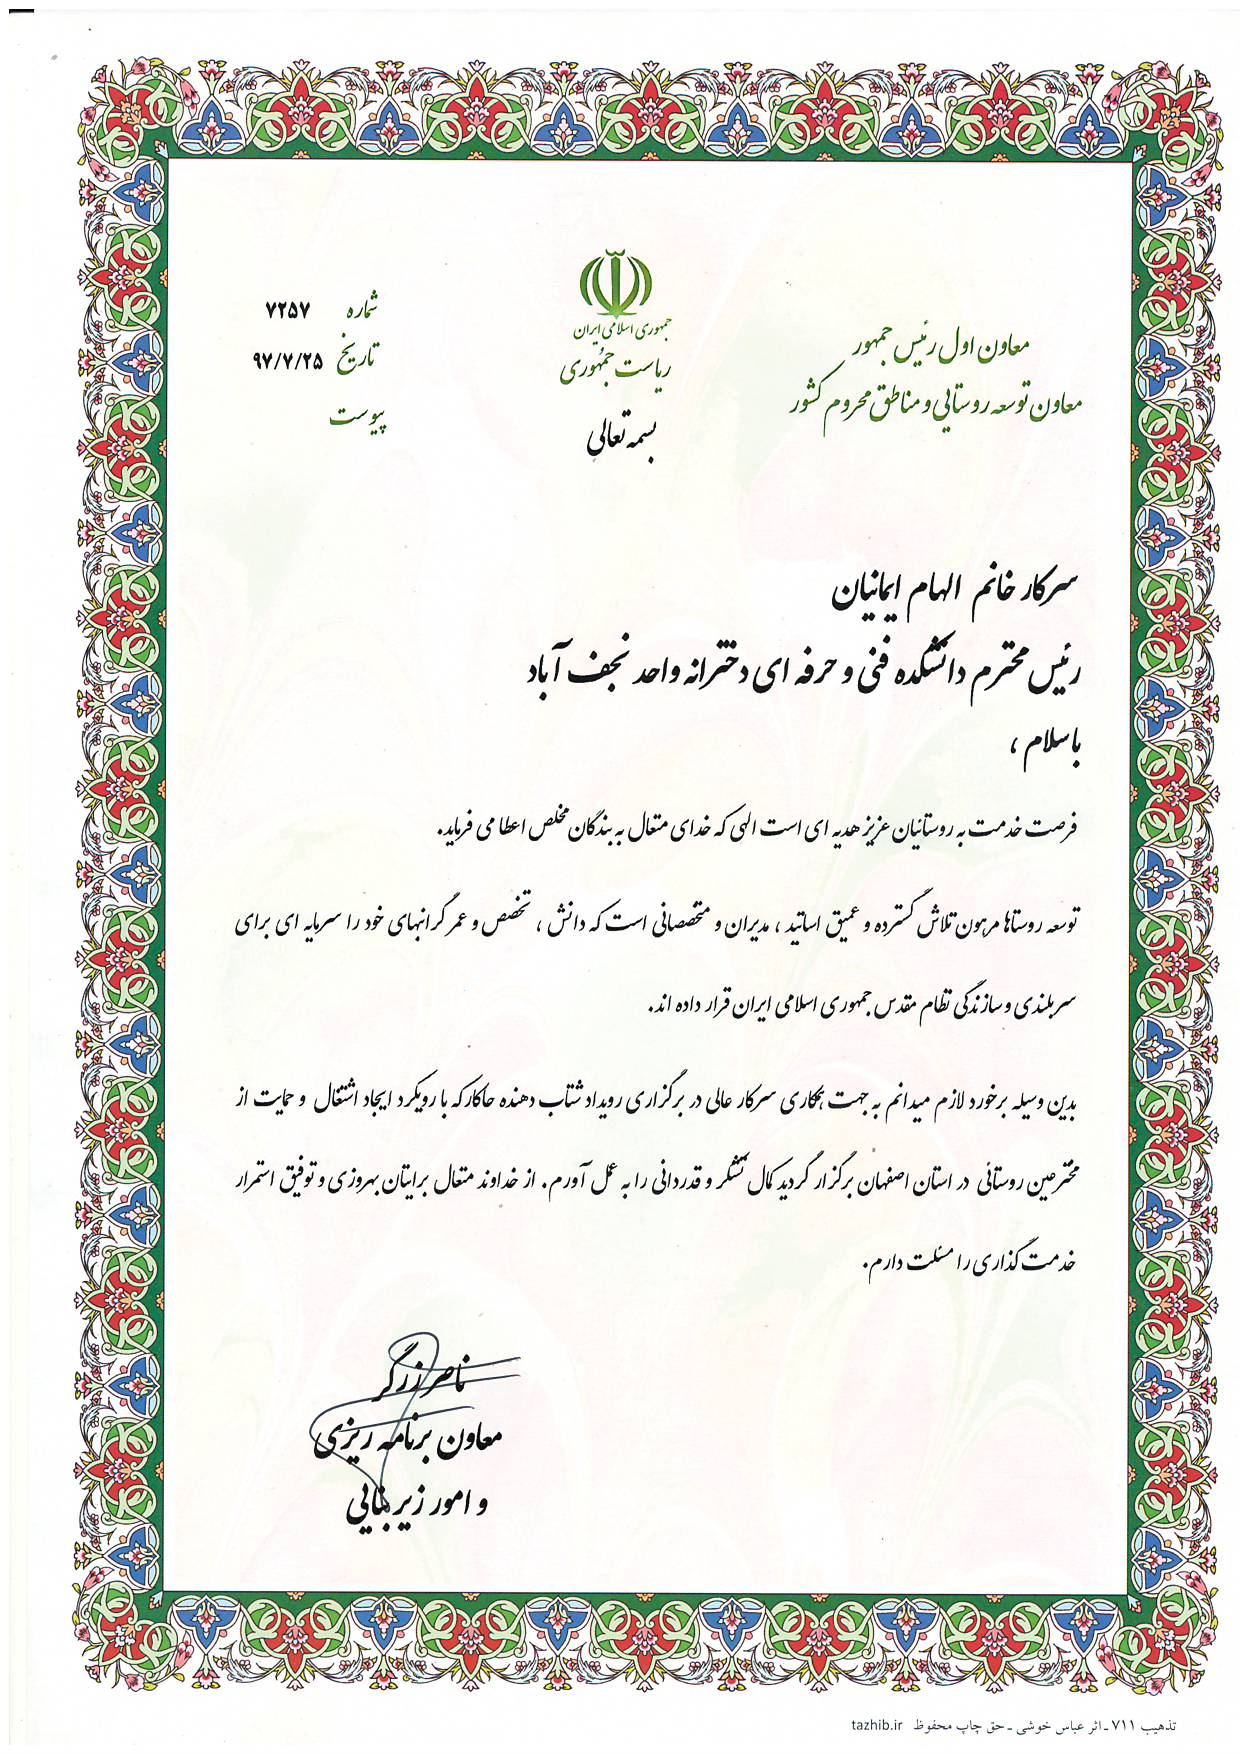 جمهوری اسلامی ایران
ریاست جمهوری
بسمه تعالی
معاون اول رئیس جمهور
معاون توسعه روستایی و مناطق محروم کشور
شماره ۷۲۵۷
تاریخ ۹۷/۷/۲۵
پیوست
سرکار خانم الهام ایمانیان
رئیس محترم دانشکده فنی و حرفه ای دخترانه واحد نجف آباد
باسلام ،
فرصت خدمت به روستائیان عزیز هدیه ای است الهی که خدای متعال به بندگان مخلص اعطا می فرماید.
توسعه روستاها مرهون تلاش گسترده و عمیق اساتید ، مدیران و متخصصانی است که دانش ، تخصص و عمر گرانبهای خود را سرمایه ای برای
سربلندی و سازندگی نظام مقدس جمهوری اسلامی ایران قرار داده اند.
بدین وسیله برخورد لازم میدانم به جهت همکاری سرکار عالی در برگزاری رویداد شتاب دهنده حاکار که با رویکرد ایجاد اشتغال و حمایت از
مخترعین روستائی در استان اصفهان برگزار گردید کمال تشکر و قدردانی را به عمل آورم. از خداوند متعال برایتان بهروزی و توفیق استمرار
خدمت گذاری را مسئلت دارم.
ناصر زرگر
معاون برنامه ریزی
و امور زیر بنایی
تذهیب ۷۱۱ - اثر عباس خوشی - حق چاپ محفوظ tazhib.ir